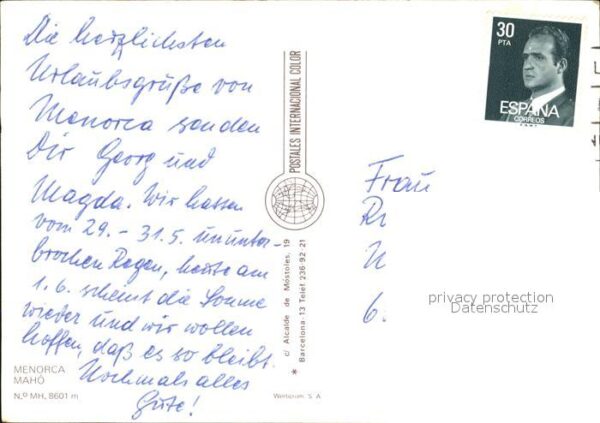 Die herzlichsten
Urlaubsgrüße von
Menorca senden
Dir Georg und
Magda. Wir hatten
vom 29. - 31.5. ununter-
brochen Regen, heute am
1.6. scheint die Sonne
wieder und wir wollen
hoffen, daß es so bleibt.
Nochmals alles
Gute!
MENORCA
MAHÓ
N.º MH, 8601 m
Werbcrom S. A
POSTALES INTERNACIONAL COLOR
c/ Alcalde de Móstoles, 19
* Barcelona-13 Telef 236-92 21
30
PTA
ESPAÑA
CORREOS
Frau
6.
privacy protection
Datenschutz